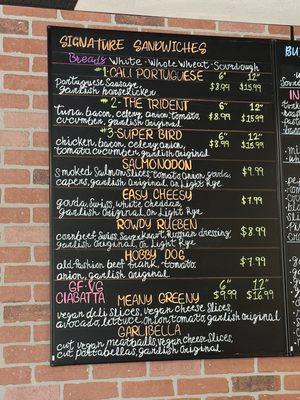 SIGNATURE SANDWICHES
Breads White - Whole Wheat - Sourdough
#1-CALI PORTUGUESE 6" 12"
Portuguese Sausage, $8.99 $15.99
Garlish
#2-THE TRIDENT 6" 12"
tuna, bacon, celery, onion, tomato, $8.99 $15.99
cucumber, garlish original
#3-SUPER BIRD 6" 12"
chicken, bacon, celery, onion, $8.99 $15.99
tomato, cucumber, garlish original
SALMONODON
smoked Salmon slices, tomato, onion, gouda, $9.99
capers, garlish Original on Light Rye
EASY CHEESY
gouda, Swiss, white cheddar, $7.99
Garlish Original on Light Rye
ROWDY RUEBEN
cornbeef, Swiss, Sauerkraut, Russian dressing, $8.99
Garlish Original, on Light Rye
HOBBY DOG
old-fashion beef frank, tomato $7.99
onion, garlish original
GF-VG 6" 12"
CIABATTA MEANY GREENY $9.99 $16.99
vegan deli slices, vegan cheese slices,
avocado, lettuce, onion, tomato, garlish original
GARLIBELLA
cut vegan meatballs, vegan cheese slices,
cut portabellas, garlish original